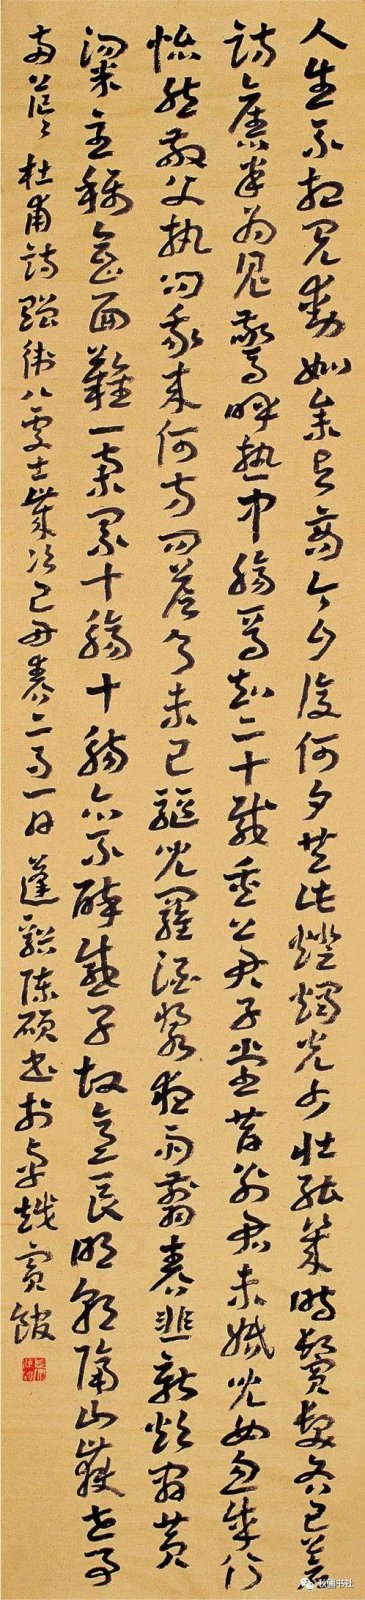 人生不相見動如參與商今夕復何夕共此燈燭光少壯能幾時鬢髮各已蒼
訪舊半為鬼驚呼熱中腸焉知二十載重上君子堂昔別君未婚兒女忽成行
怡然敬父執問我來何方問答乃未已驅兒羅酒漿夜雨翦春韭新炊間黃
粱主稱會面難一舉累十觴十觴亦不醉感子故意長明朝隔山嶽世事
兩茫々杜甫詩贈衛八處士歲次己丑春二月一日蓬谿陳碩書於卓越賓館
书社